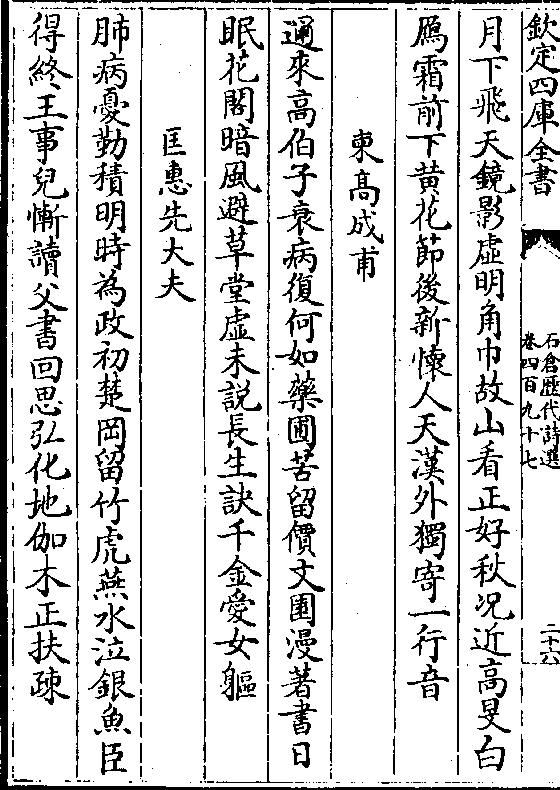 欽定四庫全書
石倉歷代詩選
卷四百九十七
二十六
月下飛天鏡影虛明角巾故山看正好秋况近高旻白
鴈霜前下黄花節後新懐人天漢外獨寄一行音
柬髙成甫
通來高伯子衰病復何如藥圃苦留價文園漫著書日
眠花閣暗風避草堂虛未說長生訣千金愛女軀
匡惠先大夫
肺病憂勤積明時為政初楚岡留竹虎燕水泣銀魚臣
得終王事兒慚讀父書回思弘化地伽木正扶疎